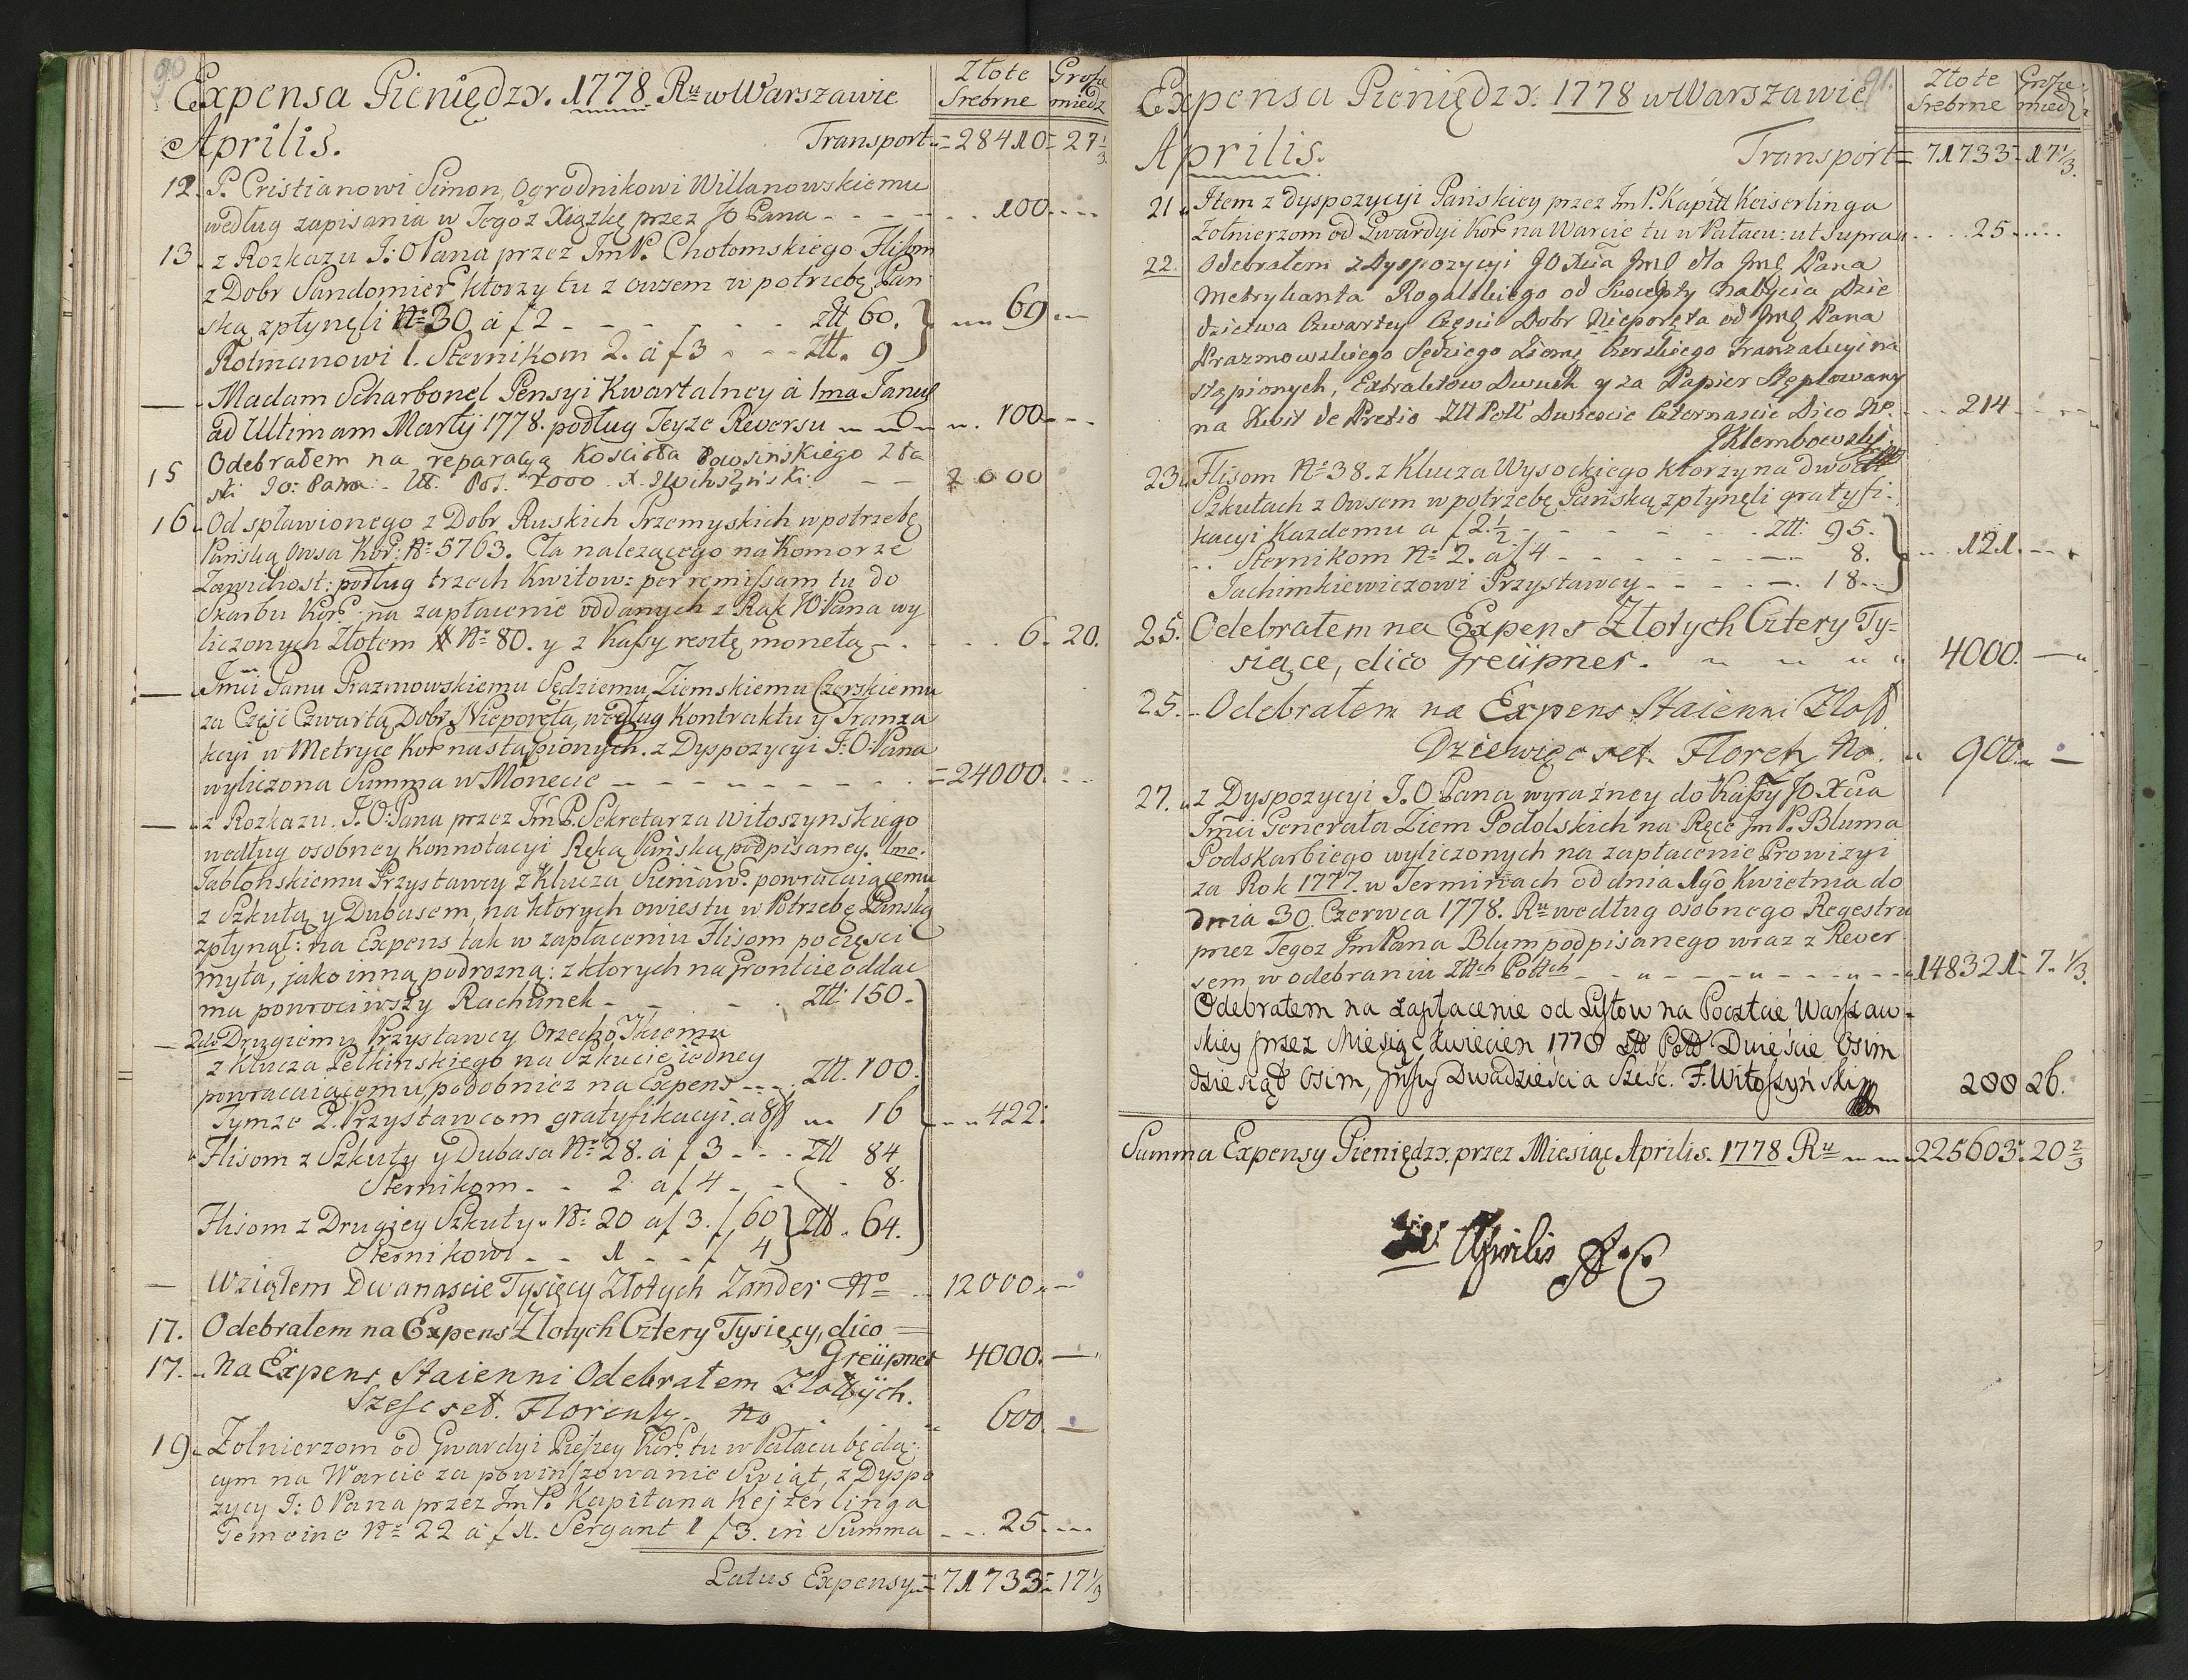 90
Expensa Pieniędzy. 1778 Ru w Warszawie
Złote Srebrne
Grosze miedz
Aprilis.
Transport = 28410 = 27 1/3
12. P. Cristianowi Simon, Ogrodnikowi Willanowskiemu
według zapisania w Tegoz Xiązkę przez JO Pana - - - - 100 - - -
13. z Rozkazu J: O Pana przez Im P. Chołomskiego Flisom
z Dobr Sandomier którzy tu z owsem w potrzebę Pań
ską zpłynęli No 30 á f 2 - - - - - Złł 60.
69
Rotmanowi 1. Sternikom 2. á f 3 - - - Złł. 9
— Madam Scharbonel Pensyi Kwartalney á 1ma Janu
ad Ultimam Martij 1778. podług Jeyze Reversu 100 - -
15 Odebrałem na reparacyą Kościoła
ski JO: Pana - Złł. Pol. 2000. X. - - 2000
16. Od spławionego z Dobr Ruskich Przemyskich w potrzebę
Pańską Owsa Kor: No 5763. Cła nalezącego na Komorze
Zawichost: podług trzech Kwitow: per remissam tu do
Skarbu Kor: na zapłacenie oddanych z Rąk JO Pana wy
liczonych Złotem # No 80. y z Kassy resztę monetą - - - 6. 20.
— Jmci Panu Prazmowskiemu Sędziemu Ziemskiemu Czerskiemu
za Część Czwartą Dobr Nieporęta, według Kontraktu y Tranza
kcyi w Metryce Kor nastąpionych. z Dyspozycyi J. O Pana
wyliczona Summa w Monecie - - - - - = 24000. - -
— z Rozkazu. J. O: Pana przez Im P. Sekretarza Witoszynskiego
według osobney Konnotacyi Ręką Pańską podpisaney. 1mo.
Jabłońskiemu Przystawcy z Klucza Sieniaw: powracaiącemu
z Szkutą y Dubasem, na ktorych owies tu w Potrzebę Pańską
zpłynął: na Expens tak w zapłaceniu Flisom po części
myta, jako inną podrozną: z ktorych na Gronicie oddac
ma powrociwszy Rachunek - - - Złł: 150 -
— 2do Drugiemu Przystawcy
z Klucza Pełkinskiego na Szkucie jedney
powracaiącemu, podobniez na Expens - - . Złł. 100.
Tymze 2. Przystawcom gratyfikacyi. a 8 16
422:
Flisom z Szkuty y Dubasa No 28. á f 3 - - - Złł 84
Sternikom - - 2. á f 4 - - - 8.
Flisom z Drugiey Szkuty No 20 á f 3. f 60
Złł. 64.
Sternikowi - - 1 - - f 4
— Wziąłem Dwanascie Tysięcy Złotych Zander No 12000. -
17. Odebrałem na Expens Złotych Cztery Tysięcy, dico
Greüpner 4000. —
17. Na Expens Staienni Odebrałem
Szesc set. 600. —
19. Zołnierzom od Gwardyi Pieszey Kor: tu w Pałacu będą:
cym na Warcie za powinszowanie Swiąt, z Dyspo
zycy J: O Pana przez Im P. Kapitana Kejzerlinga
Gemeine No 22 á f 1. Sergant 1 f 3. in Summa - - 25. - -
Latus Expensy = 71733 = 17 1/3
91.
Expensa Pieniędzy. 1778 w Warszawie
Złote Srebrne
Grosze miedz
Aprilis.
Transport = 71733 = 17 1/3.
21 Item z Dyspozycyi Pańskiey przez Im P. Kapitt Keiserlinga
Zołnierzom od Gwardyi Kor na Warcie tu w Pałacu: ut supra 25
22. Odebrałem z Dyspozycyi JO Xcia dla Pana
Metrykanta Rogalskiego od Suscepty nabycia Dzie
dzictwa Czwartey Częsci Dobr Nieporęta od Pana
Prazmowskiego Sędziego Ziems Czerskiego Tranzakcyi na
stąpionych, Extraktow Dwuch y za Papier Stęplowany
na Kwit de Pretio Złł Poll Dwiescie Czternascie Dico No. 214
JKlembowski
23. Flisom No 38. z Klucza Wysockiego ktorzy na dwoch
Szkutach z Owsem w potrzebę Pańską zpłynęli gratyfi:
kacyi Kazdemu a f 2 1/2 - - - - Złł: 95.
Sternikom No 2. a f 4 - - - - - 8.
121.
Jachimkiewiczowi Przystawcy - - - - 18.
25. Odebrałem na Expens Złotych Cztery Ty=
siące, dico Greüpner. 4000. —
25. Odebrałem na Expens Staienni
Dziewięc set. 900. —
27. z Dyspozycyi J. O. Pana wyrazney do Kassy JO Xcia
Jmci Generała Ziem Podolskich na Ręce Im P. Bluma
Podskarbiego wyliczonych na zapłacenie Prowizyi
za Rok 1777. w Terminach od dnia 1go Kwietnia do
dnia 30. Czerwca 1778. Ru według osobnego Regestru
przez Tegoz Im Pana Blum podpisanego wraz z Rever
sem w odebraniu Złłch Pollch - - - 148321. 7. 1/3.
Odebrałem na zapłacenie od Listow na Poczcie Warszaw-
skiey przez Miesiąc Kwiecien 1778 Złł Poll Dwieście Osim
dziesiąt Osim, Dwadzieścia Sześć. F. Witoszyński 288 26.
Summa Expensy Pieniędzy. przez Miesiąc Aprilis. 1778 Ru 225603. 20 2/3
Aprilis